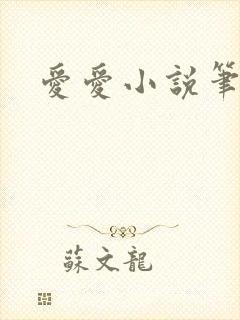 愛愛小説筆
蘇文龍